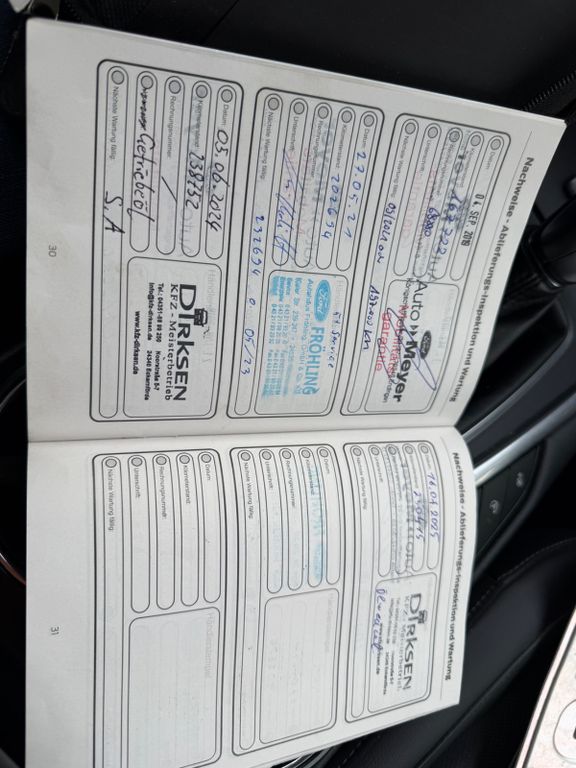 Nachweise - Ablieferungs-Inspektion und Wartung
Datum
04. SEP. 2019
Kilometerstand
167222
Rechnungsnummer:
Unterschrift:
Nächste Wartung fällig:
09/2021 od. 197.000 km
Ford
Auto Meyer
Mobilitäts
Garantie
Datum
27.05.21
Kilometerstand:
202694
Rechnungsnummer:
Unterschrift:
Nächste Wartung fällig:
232694 o. 05/23
Service
Ford
FRÖHLING
Datum
05.06.2024
Kilometerstand:
238732
Rechnungsnummer:
Getriebeöl
Nächste Wartung fällig:
S.A
DIRKSEN
KFZ - Meisterbetrieb
Tel.: 04351-88 99 200
Noorstraße 5-7
info@kfz-dirksen.de
24340 Eckernförde
www.kfz-dirksen.de
30
Nachweise - Ablieferungs-Inspektion und Wartung
Datum
16.01.2025
Kilometerstand:
Rechnungsnummer:
Unterschrift:
Nächste Wartung fällig:
DIRKSEN
KFZ - Meisterbetrieb
Datum:
Kilometerstand:
Rechnungsnummer:
Unterschrift:
Nächste Wartung fällig:
Händlerstempel
Datum:
Kilometerstand:
Rechnungsnummer:
Unterschrift:
Nächste Wartung fällig:
Händlerstempel
31